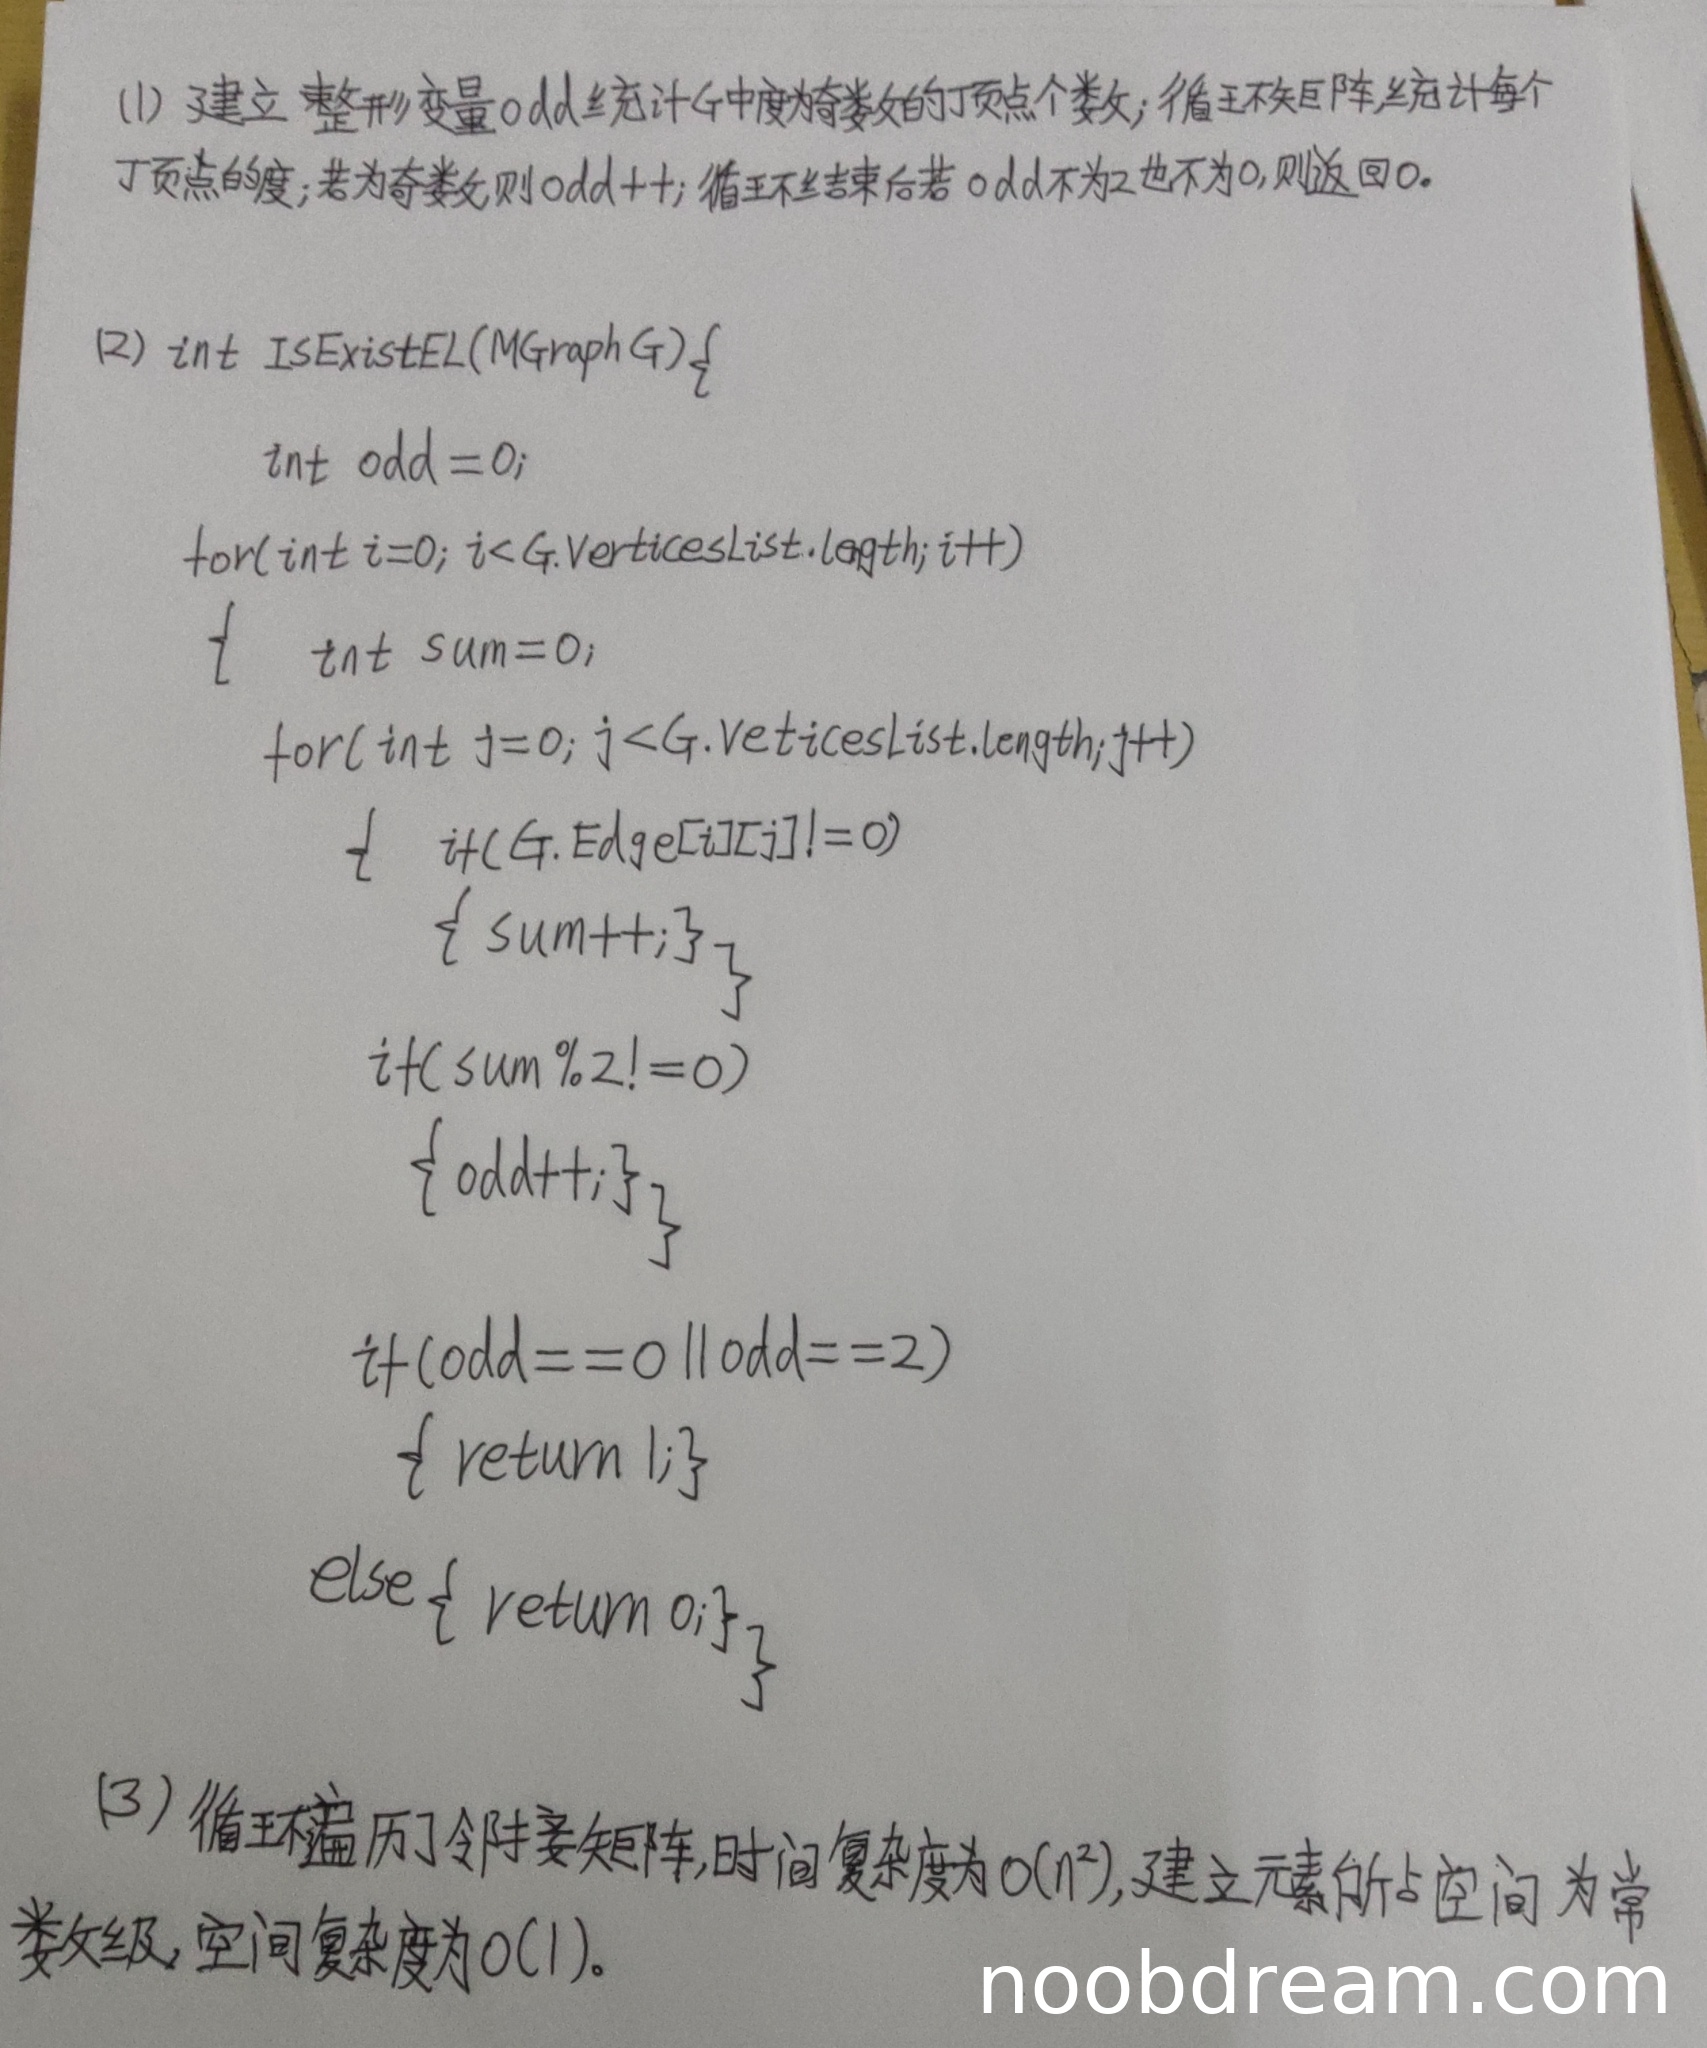 (1) 建立 整形变量odd统计G中度为奇数的顶点个数；循环矩阵,统计每个
顶点的度；若为奇数则odd++；循环结束后若odd不为2也不为0,则返回0。
(2) int IsExistEL(MGraph G){
int odd=0;
for(int i=0; i<G.VerticesList.length; i++)
{ int sum=0;
for(int j=0; j<G.VeticesList.length; j++)
{ if(G.Edge[i][j]!=0)
{ sum++;}}
if(sum%2!=0)
{odd++;}}
if(odd==0||odd==2)
{ return 1;}
else{ return 0;}}
(3) 循环遍历了邻接矩阵,时间复杂度为O(n²),建立元素所占空间为常
数级,空间复杂度为O(1)。
noobdream.com